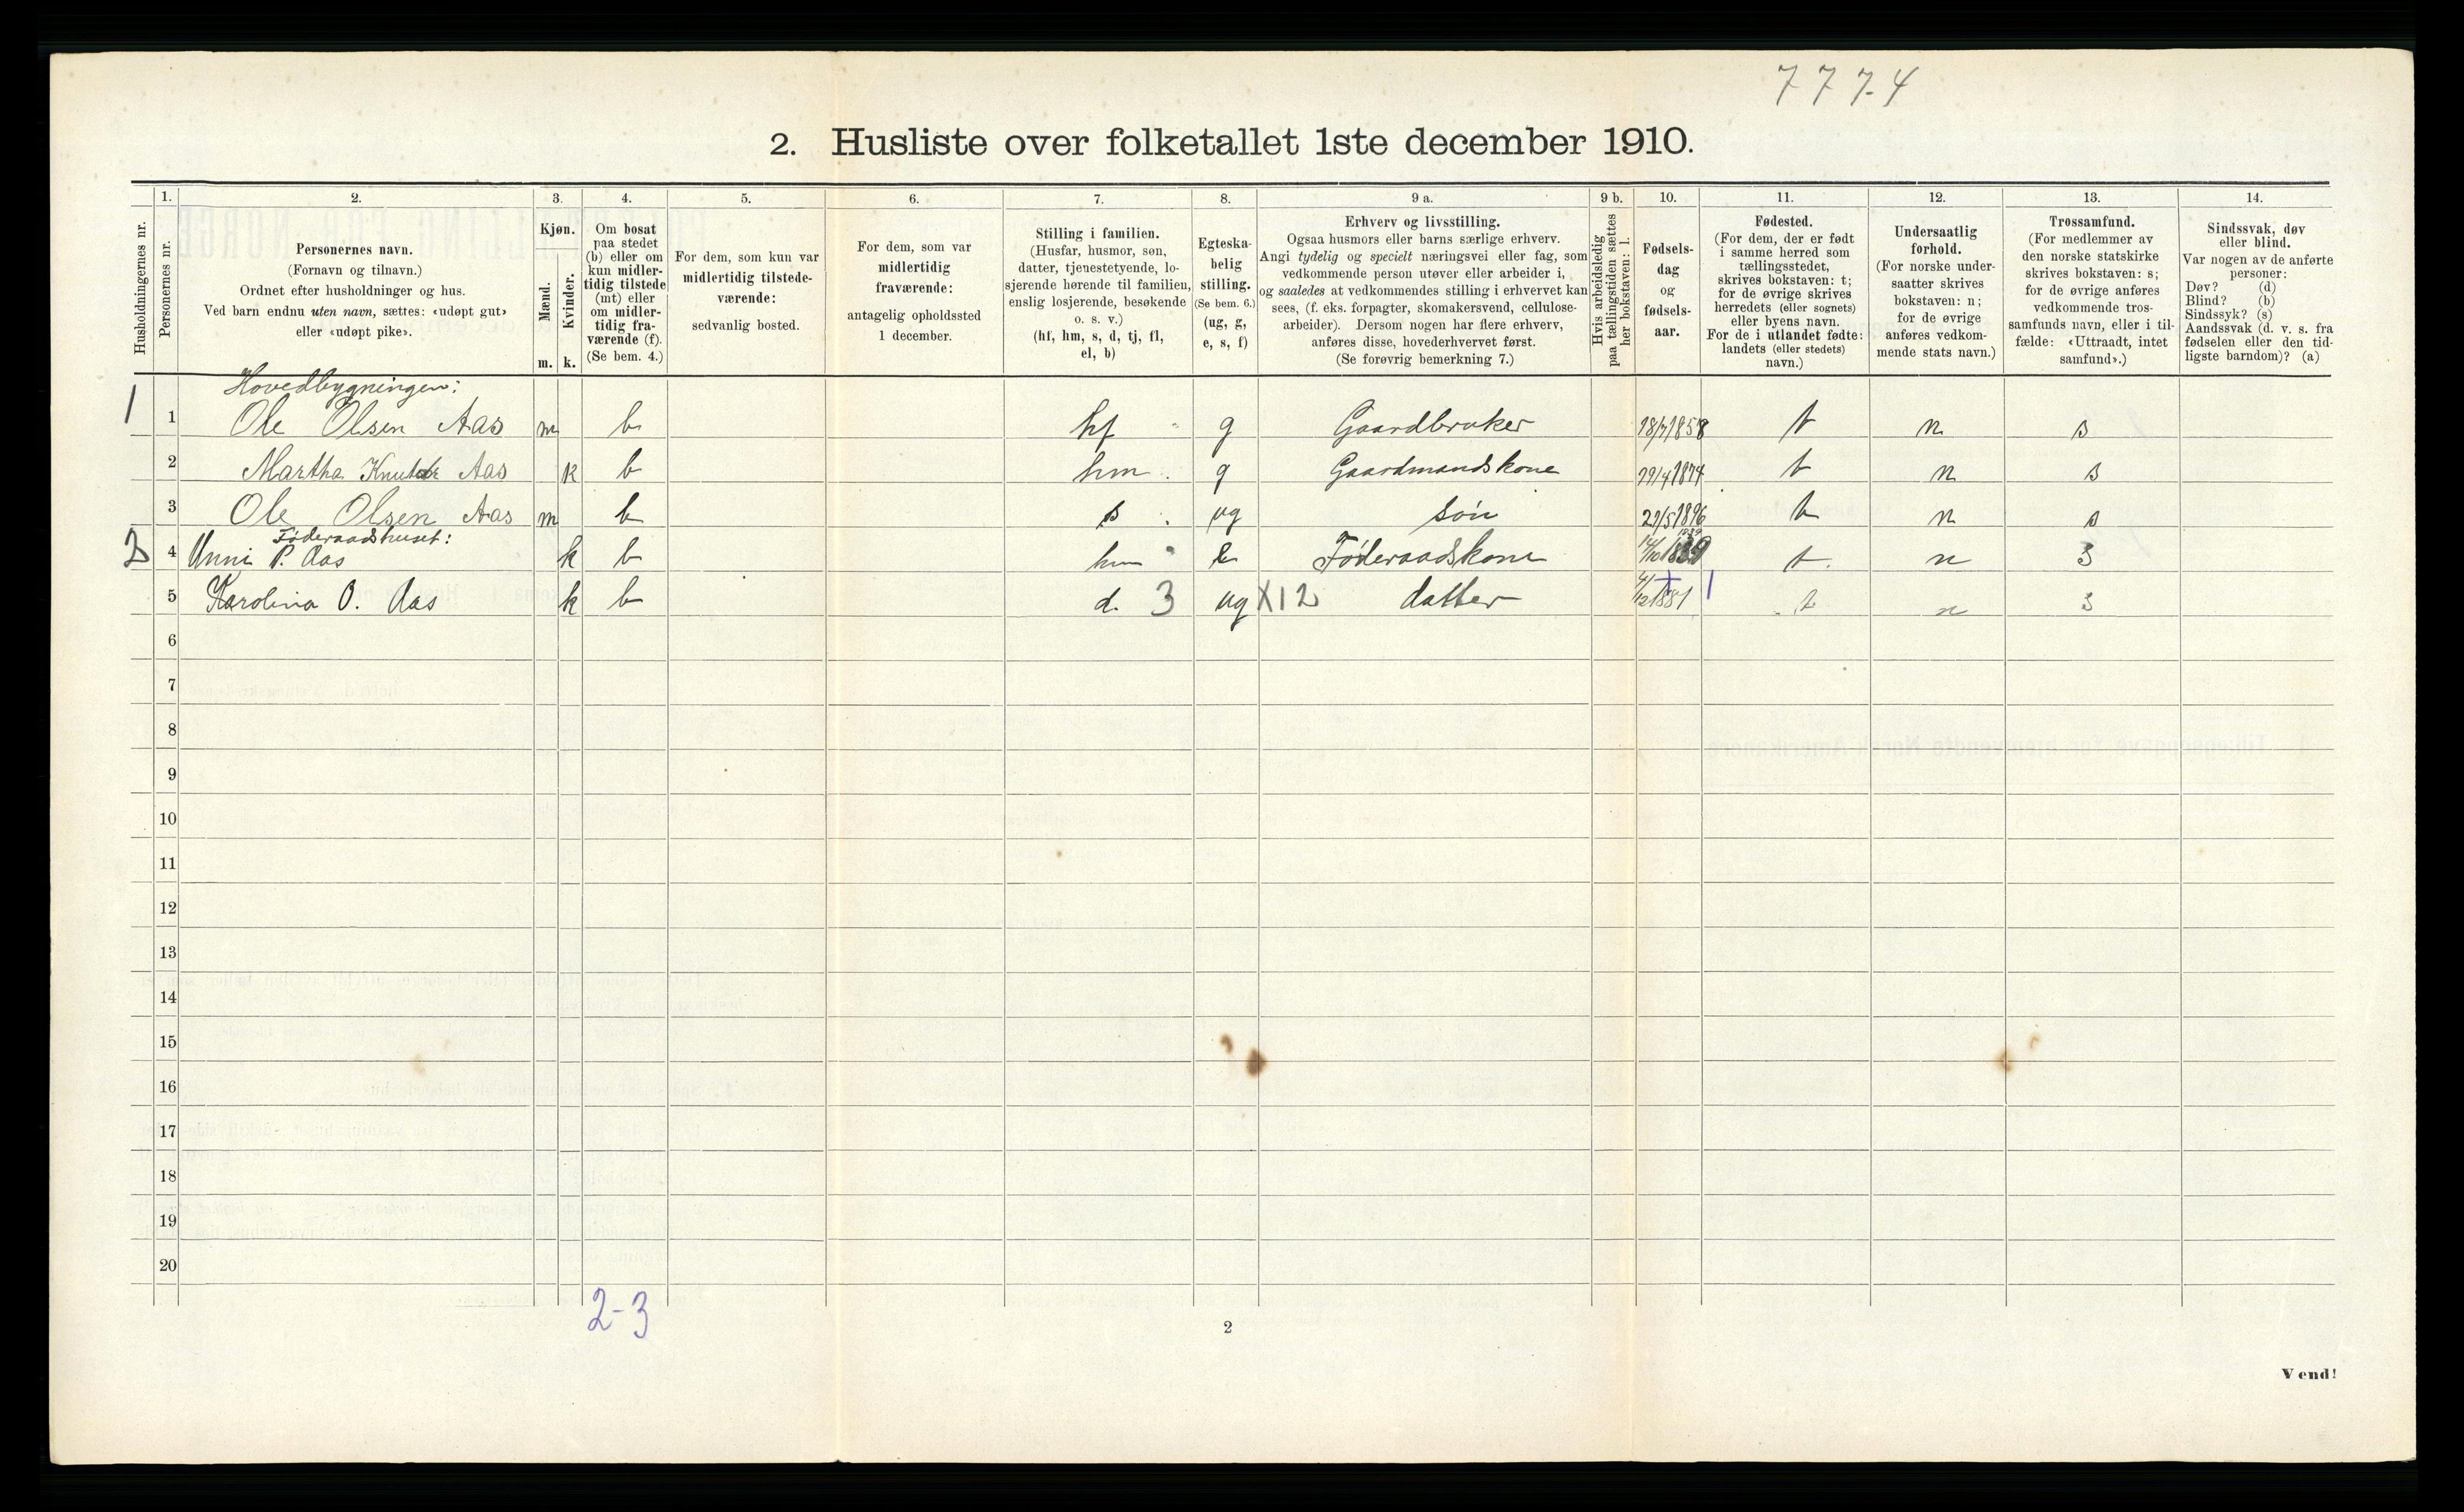 7 7 7.4
2. Husliste over folketallet 1ste december 1910.
1. 2. 3. 4. 5. 6. 7. 8. 9 a. 9 b. 10. 11. 12. 13. 14.
Husholdningernes nr.
Personernes nr.
Personernes navn.
(Fornavn og tilnavn.)
Ordnet efter husholdninger og hus.
Ved barn endnu uten navn, sættes: «udøpt gut»
eller «udøpt pike».
Kjøn.
Mænd.
Kvinder.
m. k.
Om bosat
paa stedet
(b) eller om
kun midler-
tidig tilstede
(mt) eller
om midler-
tidig fra-
værende (f).
(Se bem. 4.)
For dem, som kun var
midlertidig tilstede-
værende:
sedvanlig bosted.
For dem, som var
midlertidig
fraværende:
antagelig opholdssted
1 december.
Stilling i familien.
(Husfar, husmor, søn,
datter, tjenestetyende, lo-
sjerende hørende til familien,
enslig losjerende, besøkende
o. s. v.)
(hf, hm, s, d, tj, fl,
el, b)
Egteska-
belig
stilling.
(Se bem. 6.)
(ug, g,
e, s, f)
Erhverv og livsstilling.
Ogsaa husmors eller barns særlige erhverv.
Angi tydelig og specielt næringsvei eller fag, som
vedkommende person utøver eller arbeider i,
og saaledes at vedkommendes stilling i erhvervet kan
sees, (f. eks. forpagter, skomakersvend, cellulose-
arbeider). Dersom nogen har flere erhverv,
anføres disse, hovederhvervet først.
(Se forøvrig bemerkning 7.)
Hvis arbeidsledig
paa tællingstiden sættes
her bokstaven: l.
Fødsels-
dag
og
fødsels-
aar.
Fødested.
(For dem, der er født
i samme herred som
tællingsstedet,
skrives bokstaven: t;
for de øvrige skrives
herredets (eller sognets)
eller byens navn.
For de i utlandet fødte:
landets (eller stedets)
navn.)
Undersaatlig
forhold.
(For norske under-
saatter skrives
bokstaven: n;
for de øvrige
anføres vedkom-
mende stats navn.)
Trossamfund.
(For medlemmer av
den norske statskirke
skrives bokstaven: s;
for de øvrige anføres
vedkommende tros-
samfunds navn, eller i til-
fælde: «Uttraadt, intet
samfund».)
Sindssvak, døv
eller blind.
Var nogen av de anførte
personer:
Døv? (d)
Blind? (b)
Sindssyk? (s)
Aandssvak (d. v. s. fra
fødselen eller den tid-
ligste barndom)? (a)
Hovedbygningen:
1 1 Ole Olsen Aas m b hf g Gaardbruker 18/7 1858 t n s
2 Martha Knutdr Aas k b hm g Gaardmandskone 29/4 1874 t n s
3 Ole Olsen Aas m b s ug søn 29/5 1896 t n s
Føderaadshuset:
2 4 Unni P. Aas k b hm e Føderaadskone 14/10 1839 t. n s
5 Karolina O. Aas k b d. 3 ug X12 datter 4/12 1881 t n s
6
7
8
9
10
11
12
13
14
15
16
17
18
19
20
2-3
2
Vend!